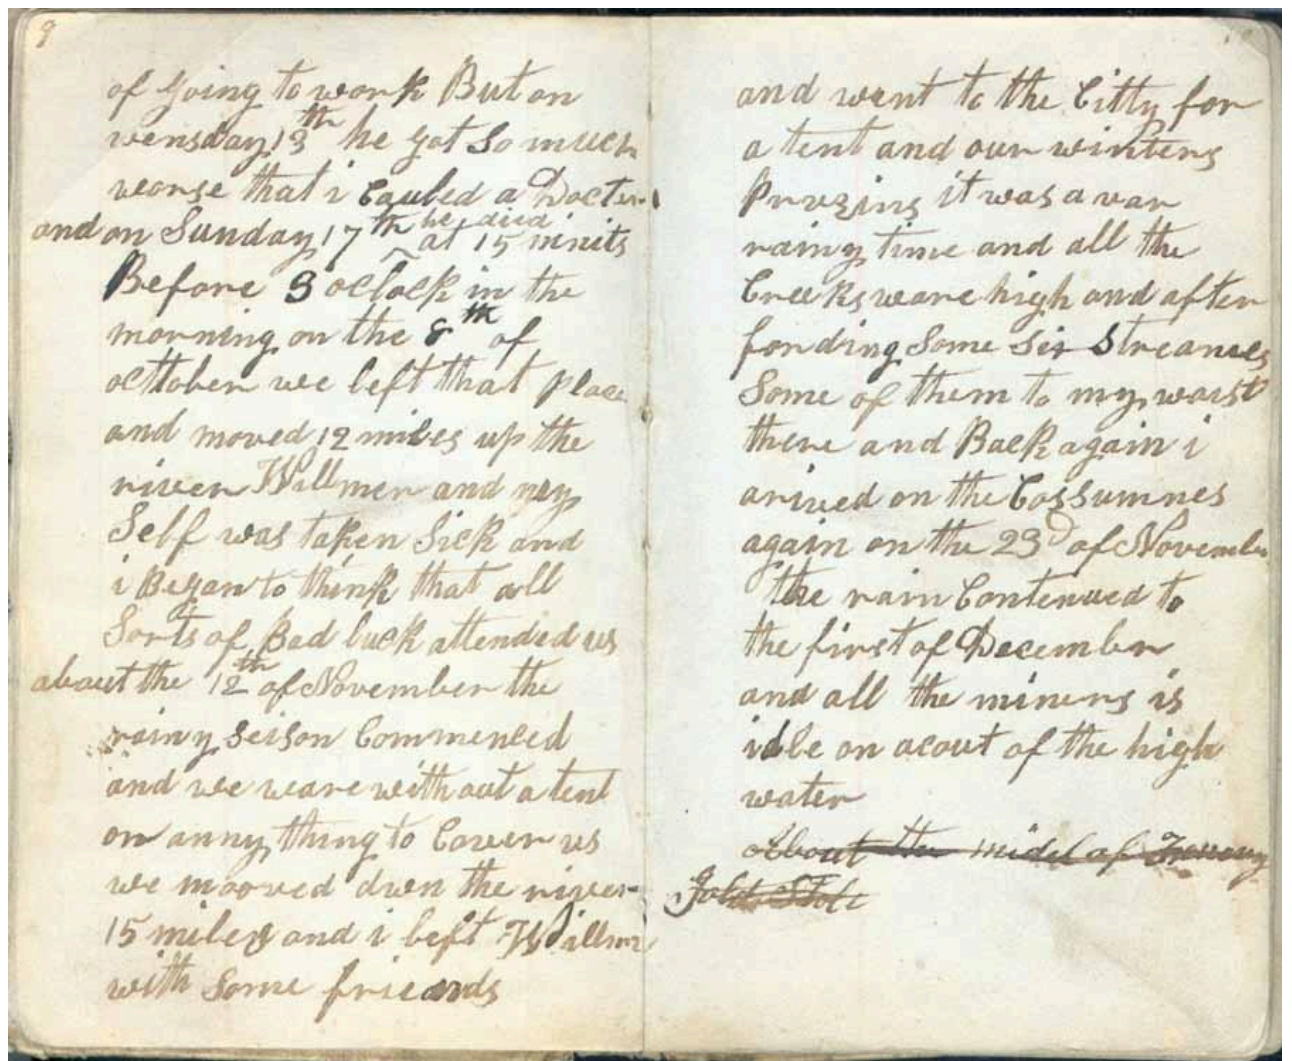 9
of going to work But on
wensday 13th he got so much
worse that i Cauled a Docter
and on Sunday 17th he died at 15 minits
Before 3 oclock in the
morning on the 8th of
octtober we left that place
and moved 12 miles up the
river Willmer and my
Self was taken Sick and
i Began to think that all
Sorts of Bad luck attended us
about the 12th of November the
rainy seison Commenced
and we ware without a tent
or anny thing to Cover us
we mooved down the river
15 miles and i left Willmer
with some friends
and went to the Citty for
a tent and our winters
it was a var
rainy time and all the
Creeks ware high and after
fording some six Streames
Some of them to my waist
there and Back again i
arived on the Cossumnes
again on the 23d of November
the rain Contenued to
the first of December
and all the miners is
idle on acout of the high
water
about the midel of